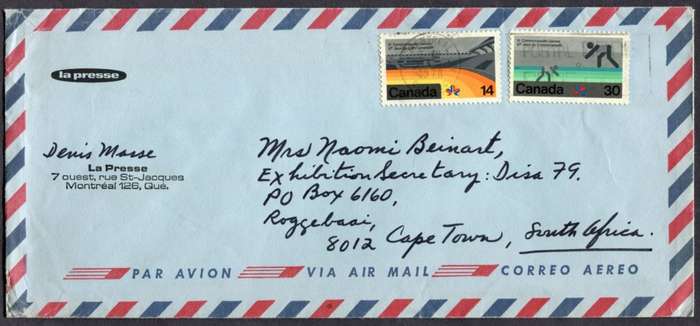 la presse
Denis Masse
La Presse
7 ouest, rue St-Jacques
Montréal 126, Qué.
Canada 14
Canada 30
Mrs Naomi Beinart,
Exhibition Secretary: Disa 79.
PO Box 6160,
Roggebaai,
8012 Cape Town, South Africa.
PAR AVION VIA AIR MAIL CORREO AEREO